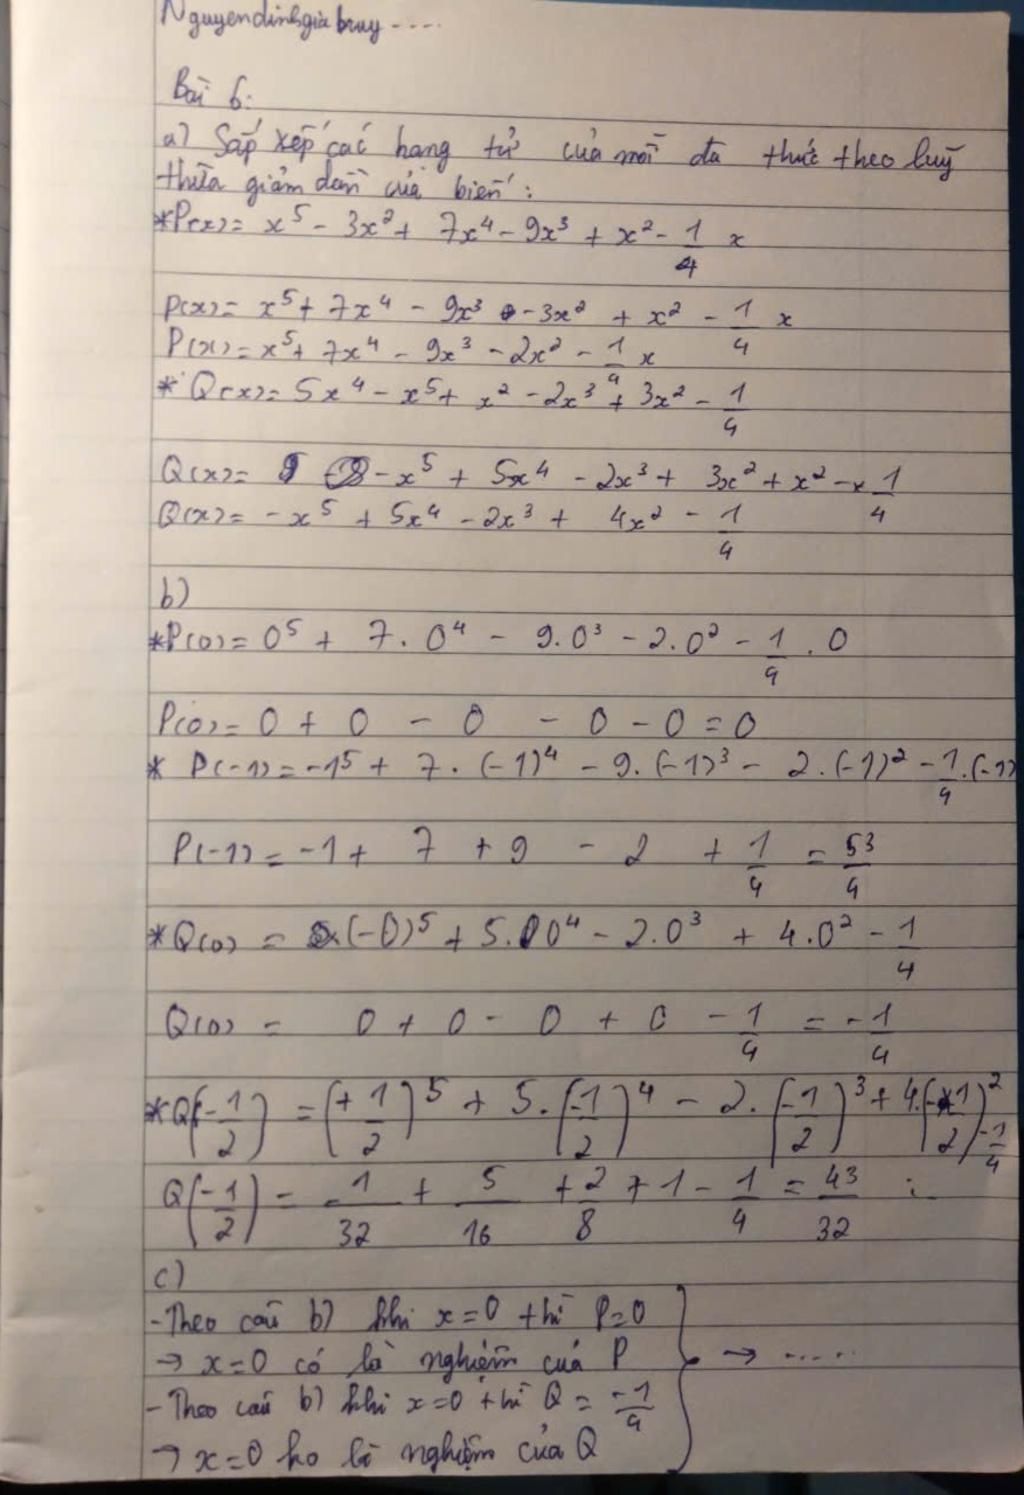 Nguyendinhgia bruy ....
Bài 6:
a) Sắp xếp các hạng tử của mỗi đa thức theo luỹ
thừa giảm dần của biến:
*P(x)= x⁵ - 3x² + 7x⁴ - 9x³ + x² - 1/4 x
P(x)= x⁵ + 7x⁴ - 9x³ - 3x² + x² - 1/4 x
P(x)= x⁵ + 7x⁴ - 9x³ - 2x² - 1/4 x
* Q(x)= 5x⁴ - x⁵ + x² - 2x³ + 3x² - 1/4
Q(x)= -x⁵ + 5x⁴ - 2x³ + 3x² + x² - 1/4
Q(x)= -x⁵ + 5x⁴ - 2x³ + 4x² - 1/4
b)
*P(0)= 0⁵ + 7.0⁴ - 9.0³ - 2.0² - 1/4 . 0
P(0)= 0 + 0 - 0 - 0 - 0 = 0
* P(-1)= -1⁵ + 7.(-1)⁴ - 9.(-1)³ - 2.(-1)² - 1/4.(-1)
P(-1)= -1 + 7 + 9 - 2 + 1/4 = 53/4
*Q(0) = (-0)⁵ + 5.0⁴ - 2.0³ + 4.0² - 1/4
Q(0) = 0 + 0 - 0 + 0 - 1/4 = -1/4
*Q(-1/2) = (+1/2)⁵ + 5.(-1/2)⁴ - 2.(-1/2)³ + 4.(-1/2)² - 1/4
Q(-1/2) = 1/32 + 5/16 + 2/8 + 1 - 1/4 = 43/32
c)
- Theo câu b) khi x=0 thì P=0
→ x=0 có là nghiệm của P → .....
- Theo câu b) khi x=0 thì Q = -1/4
→ x=0 ko là nghiệm của Q